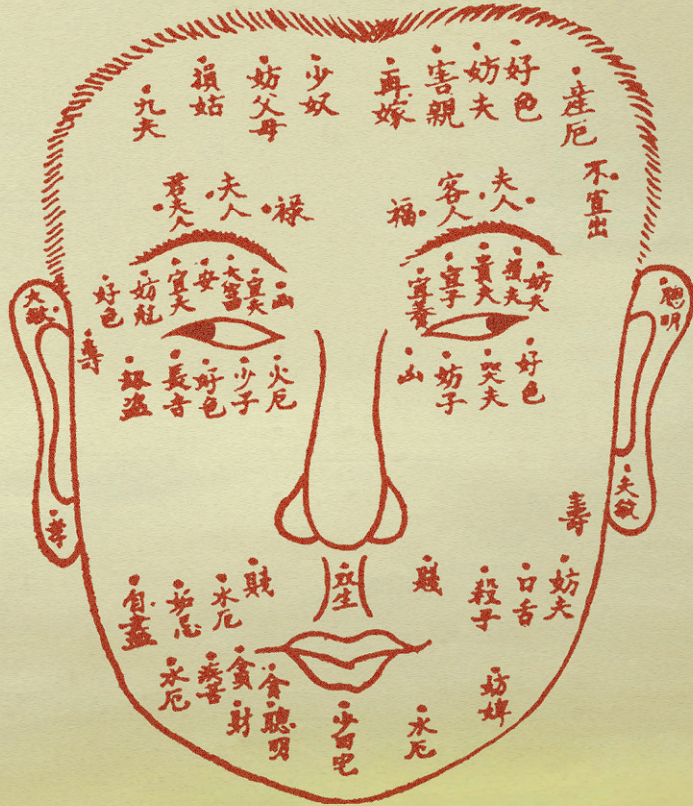 九夫
損姑
妨父母
少奴
再嫁
害親
妨夫
好色
産厄
不宜出
君夫人
夫人
禄
福
客人
夫人
好色
宜夫
安
大富
宜夫
凶
宜子
貴夫
妨夫
大敏
聰明
壽
長舌
好色
少子
火厄
凶
妨子
哭夫
好色
孝
壽
自盡
妬忌
水厄
賤
双生
賤
殺子
口舌
妨夫
水厄
疾苦
貪財
聰明
少田宅
水厄
妨婢